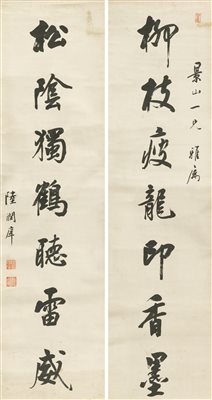 景山一兄 雅屬
柳枝瘦龍印香墨
松陰獨鶴聽雷威
陸潤庠